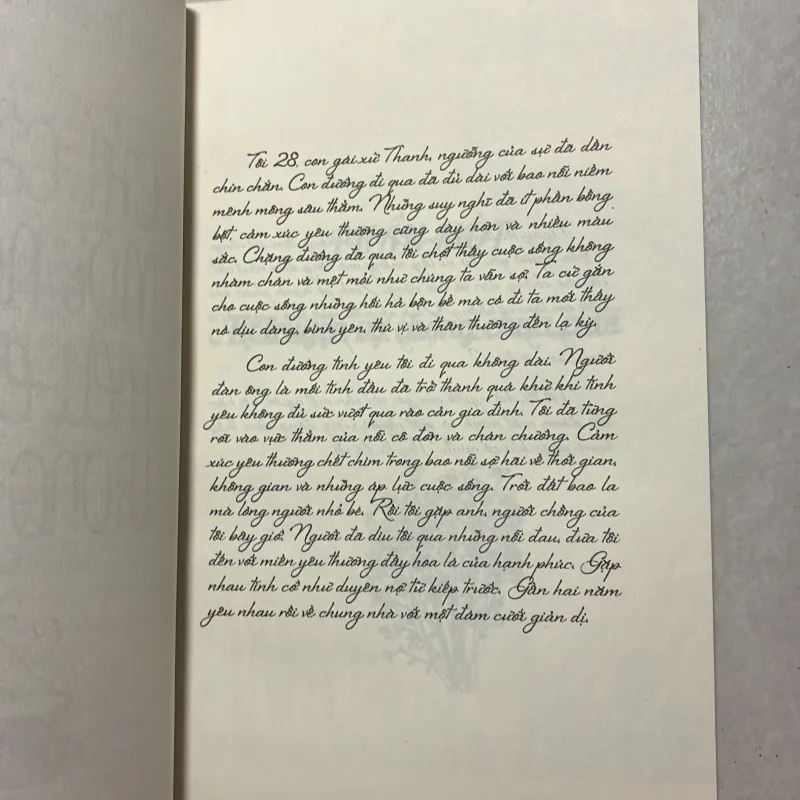 Tôi 28, con gái xứ Thanh, ngưỡng của sự đã dần
chín chắn. Con đường đi qua đã đủ dài với bao nỗi niềm
mênh mông sâu thẳm. Những suy nghĩ đã ít phần bồng
bột, cảm xúc yêu thương cũng dày hơn và nhiều màu
sắc. Chặng đường đã qua, tôi chợt thấy cuộc sống không
nhàm chán và mệt mỏi như chúng ta vẫn sợ. Ta cứ gắn
cho cuộc sống những hối hả bộn bề mà có đi ta mới thấy
nó dịu dàng, bình yên, thú vị và thân thương đến lạ kỳ.
Con đường tình yêu tôi đi qua không dài. Người
đàn ông là mối tình đầu đã trở thành quá khứ khi tình
yêu không đủ sức vượt qua rào cản gia đình. Tôi đã từng
rơi vào vực thẳm của nỗi cô đơn và chán chường. Cảm
xúc yêu thương chết chìm trong bao nỗi sợ hãi về thời gian,
không gian và những áp lực cuộc sống. Trời đất bao la
mà lòng người nhỏ bé. Rồi tôi gặp anh, người chồng của
tôi bây giờ. Người đã dìu tôi qua những nỗi đau, đưa tôi
đến với miền yêu thương đầy hoa lá của hạnh phúc. Gặp
nhau tình cờ như duyên nợ từ kiếp trước. Gần hai năm
yêu nhau rồi về chung nhà với một đám cưới giản dị.